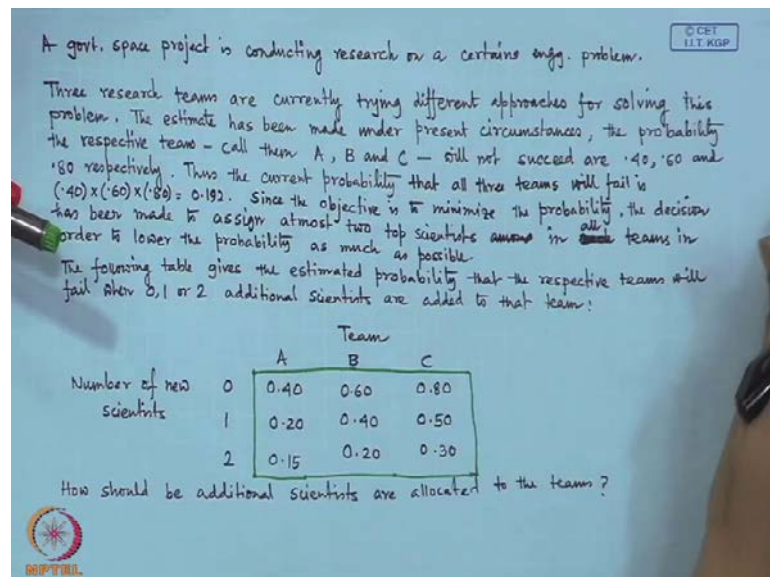 © CET
I.I.T. KGP
A govt. space project is conducting research on a certains engg. problem.
Three research teams are currently trying different approaches for solving this
problem. The estimate has been made under present circumstances, the probability
the respective teams - call them A, B and C - will not succeed are .40, .60 and
.80 respectively. Thus the current probability that all three teams will fail is
(.40) x (.60) x (.80) = 0.192. Since the objective is to minimize the probability, the decision
has been made to assign atmost two top scientists in all teams in
order to lower the probability as much as possible.
The following table gives the estimated probability that the respective teams will
fail when 0, 1 or 2 additional scientists are added to that team:
Team
A B C
Number of new 0 0.40 0.60 0.80
scientists 1 0.20 0.40 0.50
2 0.15 0.20 0.30
How should be additional scientists are allocated to the teams?
NPTEL